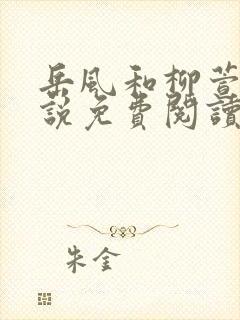 岳风和柳萱
說免費閱讀
朱金